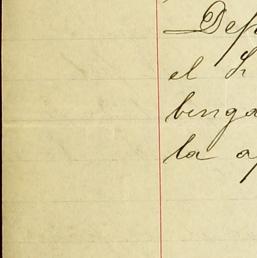 Dep
el h
benga
la a